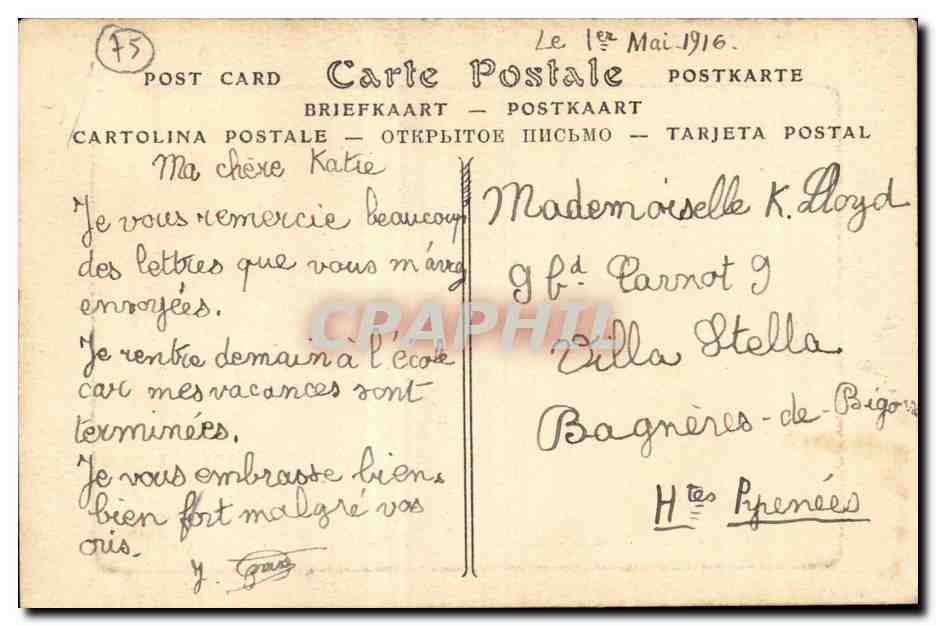 75
Le 1er Mai 1916.
POST CARD Carte Postale POSTKARTE
BRIEFKAART — POSTKAART
CARTOLINA POSTALE — ОТКРЫТОЕ ПИСЬМО — TARJETA POSTAL
Ma chère Katie
Je vous remercie beaucoup
des lettres que vous m'avez
envoyées.
Je rentre demain à l'école
car mes vacances sont
terminées.
Je vous embrasse bien
bien fort malgré vos
cris.
J.
Mademoiselle K. Lloyd
9 bd. Carnot 9
Villa Stella
Bagnères-de-Bigorre
Htes Pyrenées
CPAPHIL